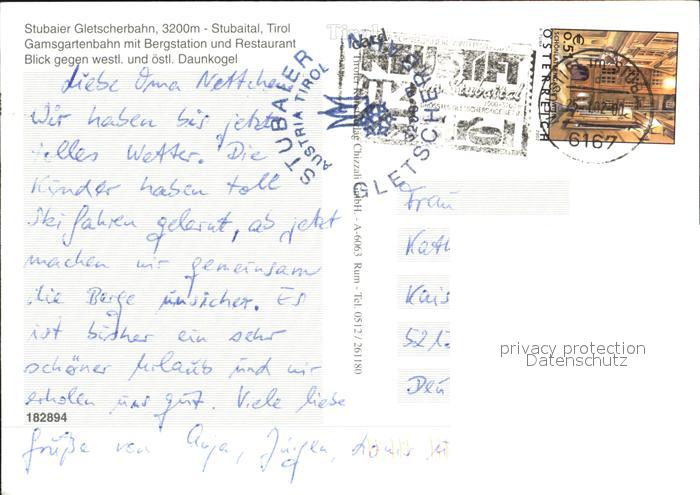 Stubaier Gletscherbahn, 3200m - Stubaital, Tirol
Gamsgartenbahn mit Bergstation und Restaurant
Blick gegen westl. und östl. Daunkogel
Liebe Oma Nettchen
Wir haben bis jetzt
tolles Wetter. Die
Kinder haben toll
Ski fahren gelernt, ab jetzt
machen wir gemeinsam
die Berge unsicher. Es
ist bisher ein sehr
schöner Urlaub und wir
erholen uns gut. Viele liebe
182894
Grüße von Anja, Jürgen,
Chizzali GmbH. - A-6063 Rum - Tel. 0512/261180
STUBAIER
AUSTRIA TIROL
GLETSCHER
NEUSTIFT
Tirol
ÖSTERREICH
6167
Frau
Kath
Kais
521
Deu
privacy protection
Datenschutz